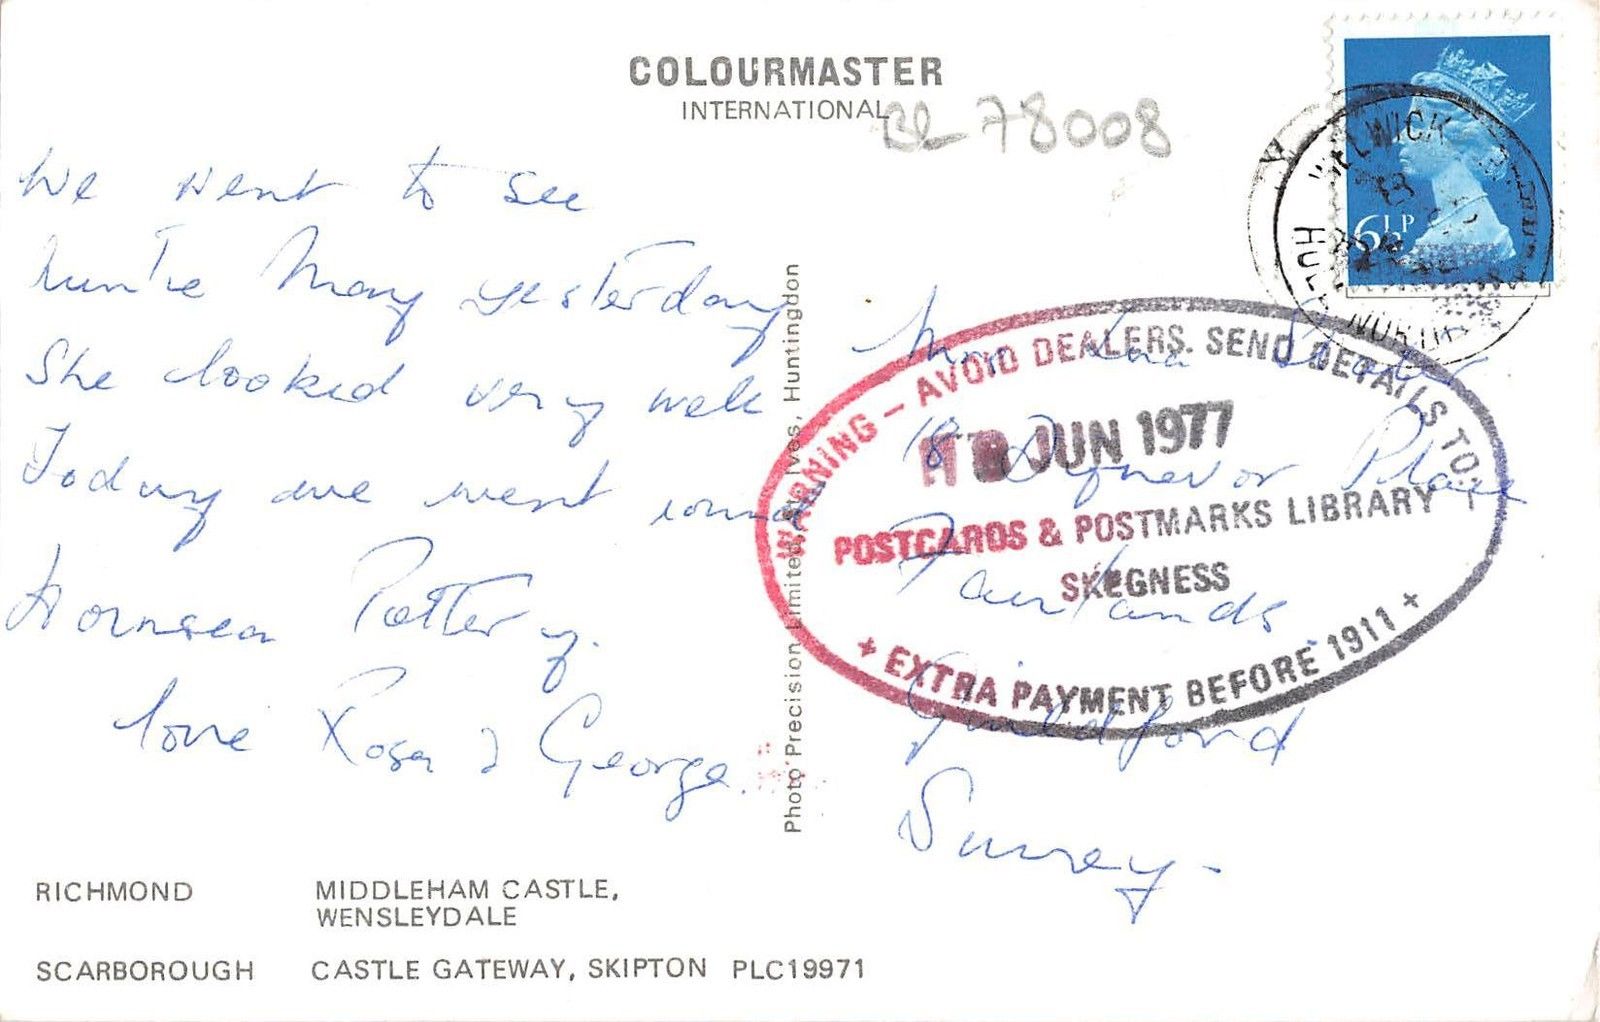 COLOURMASTER
INTERNATIONAL
BL 78008
6½P
We went to see
Auntie Mary yesterday
She looked very well
Today we went round
Hornsea Pottery.
love Rosa & George.
Photo Precision Limited, St. Ives, Huntingdon
18 Dynevor Place
Fairlands
Guildford
Surrey -
WARNING - AVOID DEALERS. SEND DETAILS TO:-
JUN 1977
POSTCARDS & POSTMARKS LIBRARY
SKEGNESS
+ EXTRA PAYMENT BEFORE 1911 +
RICHMOND
MIDDLEHAM CASTLE,
WENSLEYDALE
SCARBOROUGH
CASTLE GATEWAY, SKIPTON PLC19971